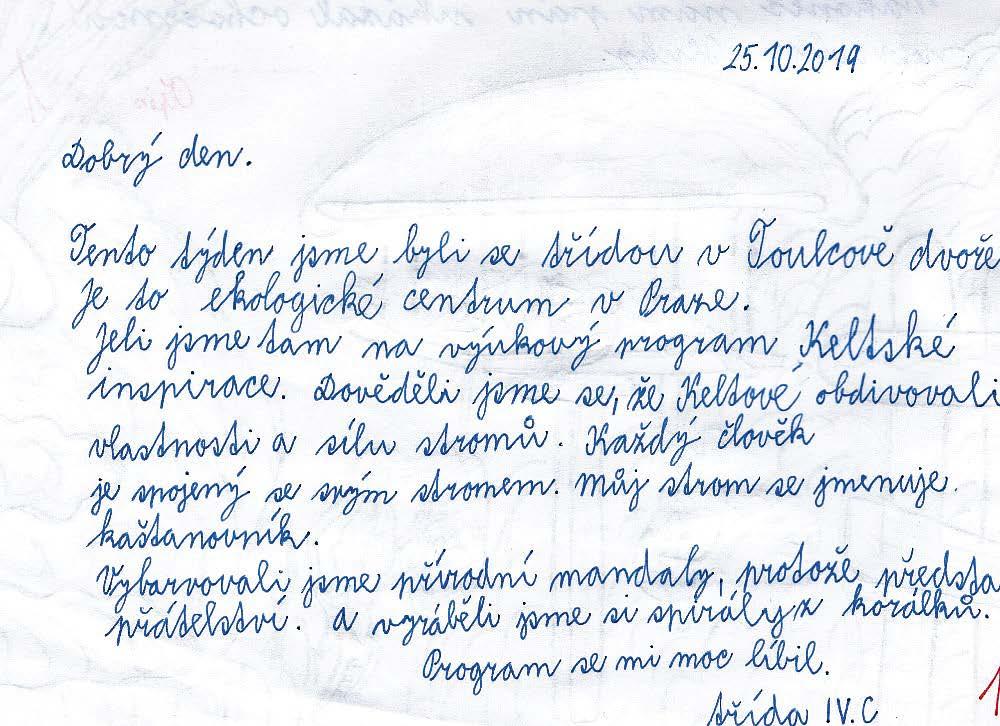 25.10.2019
Dobrý den.
Tento týden jsme byli se třídou v Toulcově dvoře
je to ekologické centrum v Praze.
Jeli jsme tam na výukový program Keltské
inspirace. Dověděli jsme se, že Keltové obdivovali
vlastnosti a sílu stromů. Každý člověk
je spojený se svým stromem. Můj strom se jmenuje.
kaštanovník.
Vybarvovali jsme přírodní mandaly, protože předsta
přátelství. a vyráběli jsme si spirály z korálků.
Program se mi moc líbil.
třída IV.C
1